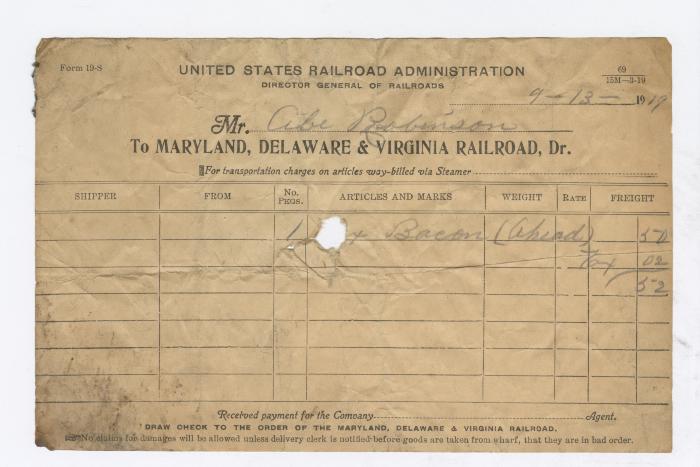 Form 19-S
UNITED STATES RAILROAD ADMINISTRATION
DIRECTOR GENERAL OF RAILROADS
69
15M—3-19
9-13- 1919
Mr. Abe Robinson
To MARYLAND, DELAWARE & VIRGINIA RAILROAD, Dr.
For transportation charges on articles way-billed via Steamer
SHIPPER FROM No. PKGS. ARTICLES AND MARKS WEIGHT RATE FREIGHT
1 x Bacon (Ahead) 50
Tax 02
52
Received payment for the Company Agent.
DRAW CHECK TO THE ORDER OF THE MARYLAND, DELAWARE & VIRGINIA RAILROAD.
No claims for damages will be allowed unless delivery clerk is notified before goods are taken from wharf, that they are in bad order.